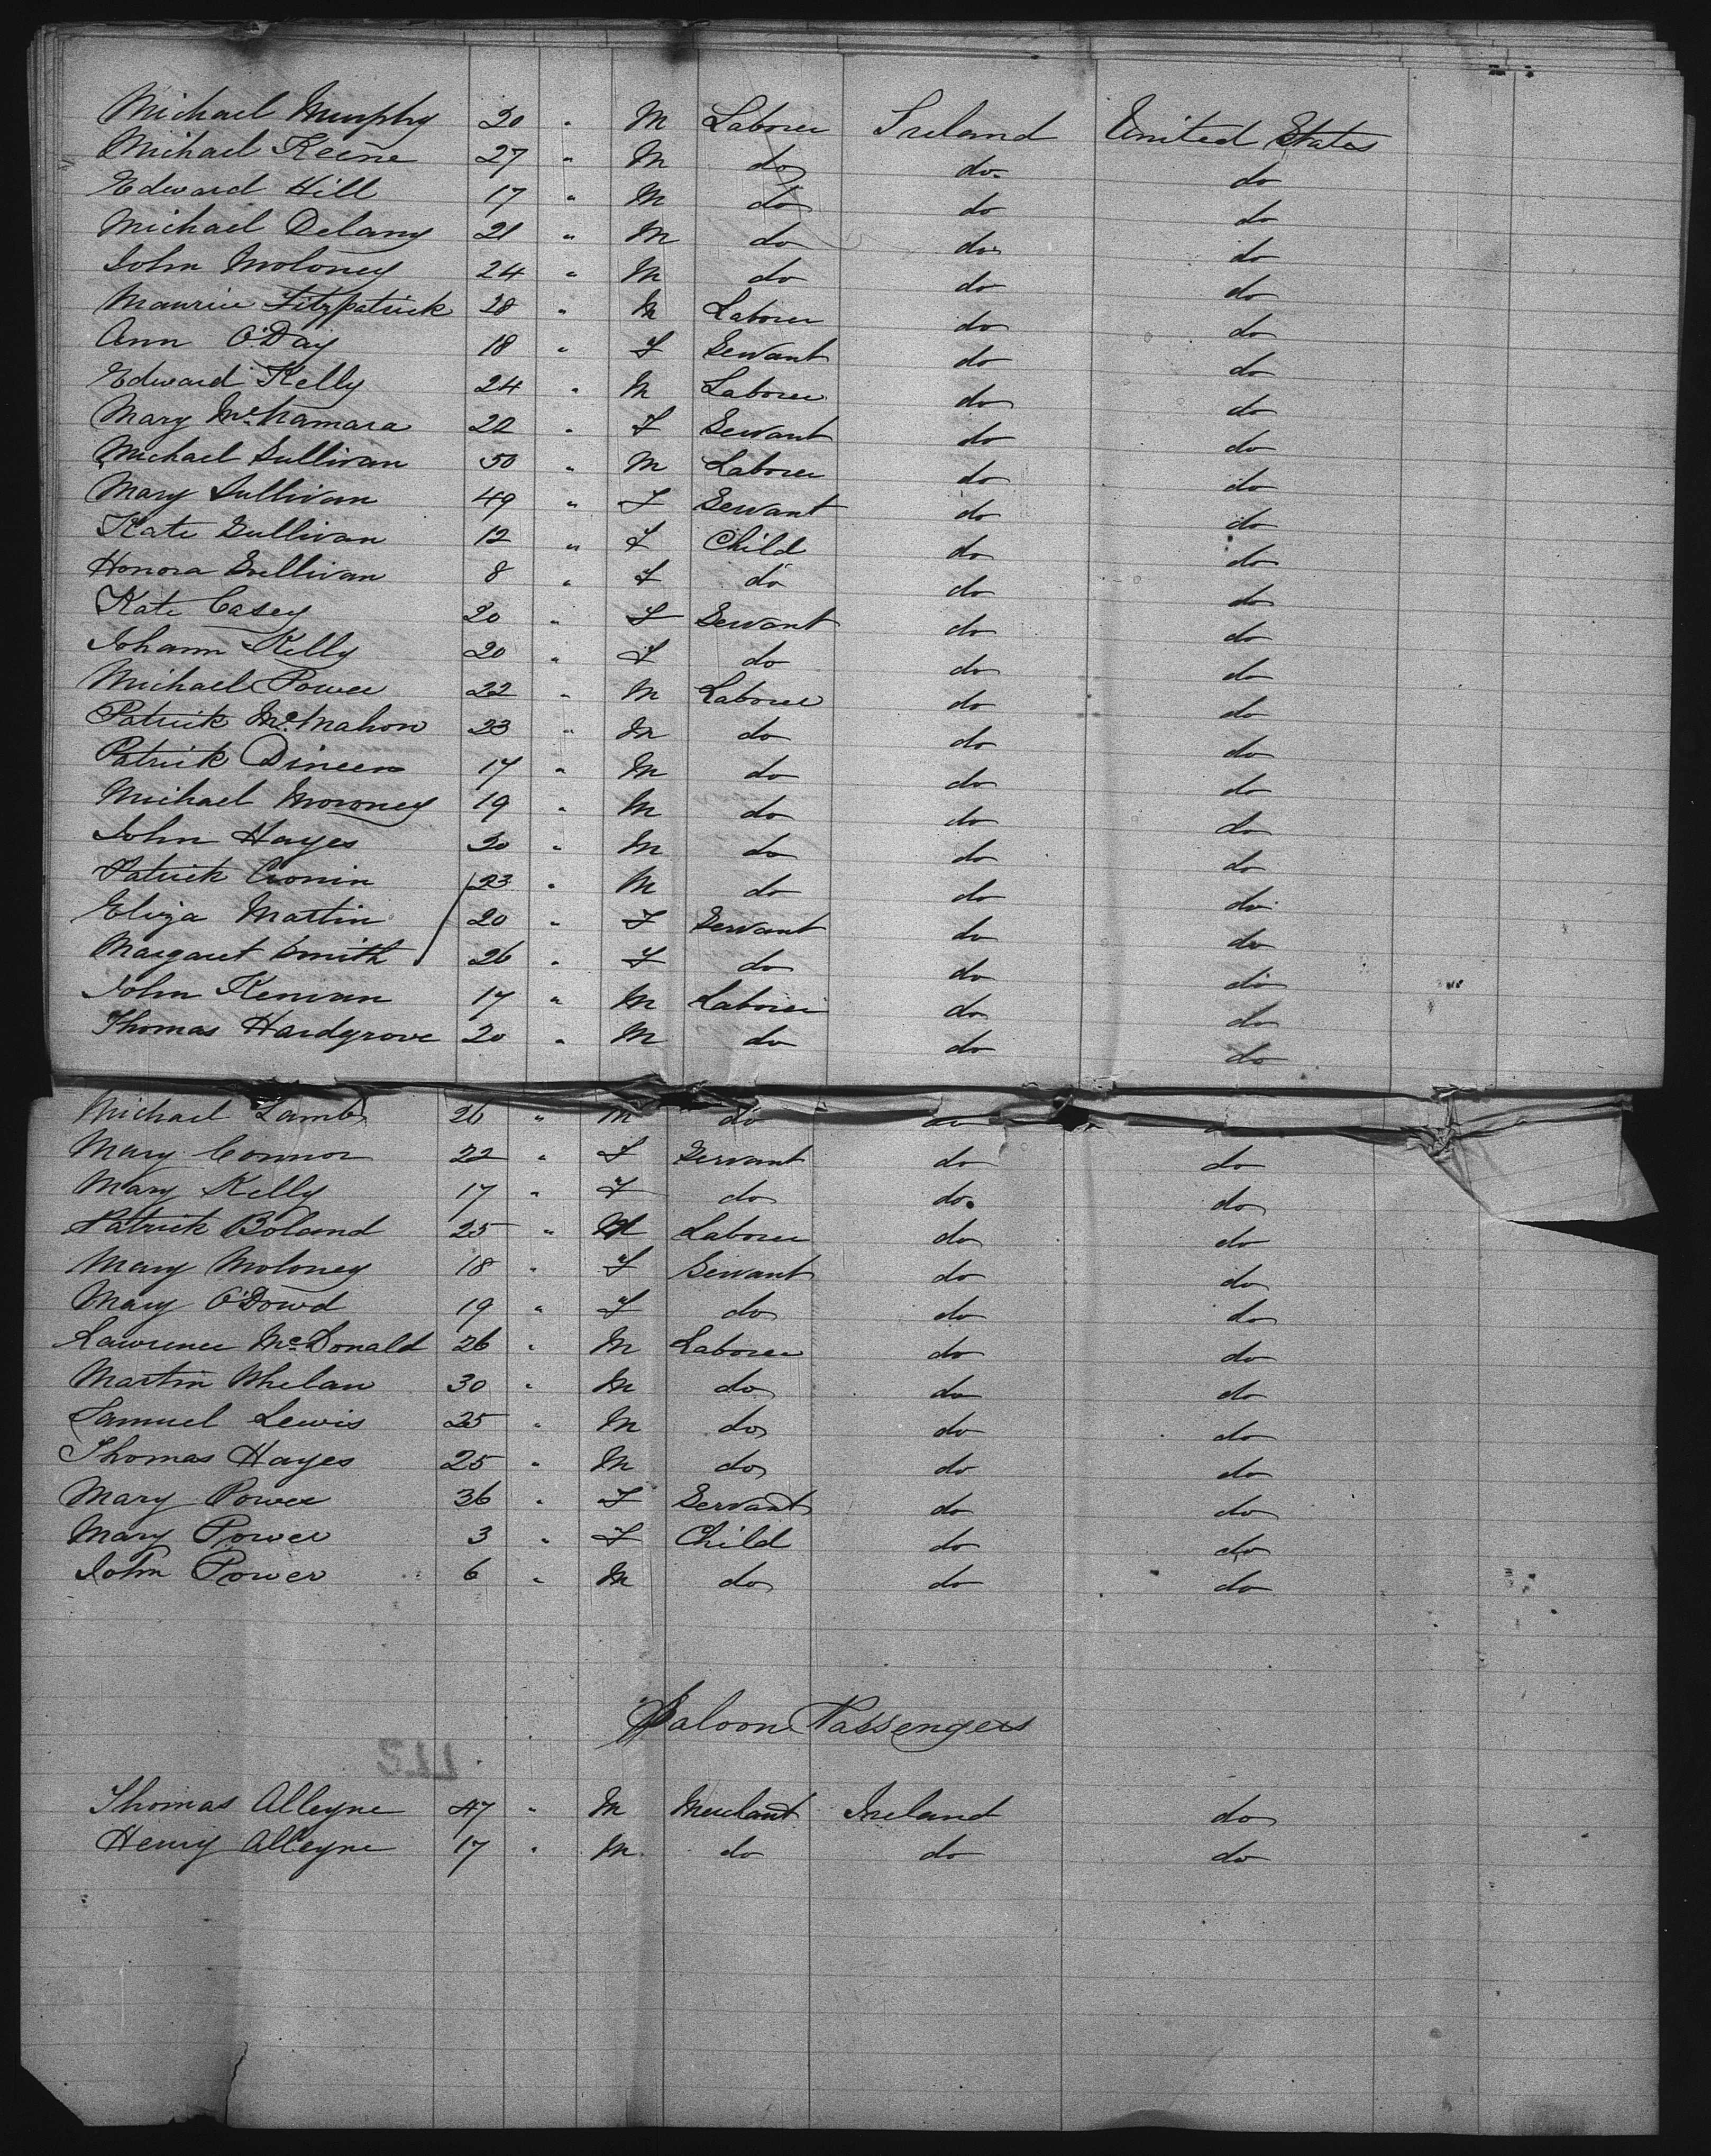 Michael Murphy 20 " M Laborer Ireland United States
Michael Keene 27 " M do do do
Edward Hill 17 " M do do do
Michael Delany 21 " M do do do
John Moloney 24 " M do do do
Maurice Fitzpatrick 28 " M Laborer do do
Ann O'Day 18 " F Servant do do
Edward Kelly 24 " M Laborer do do
Mary McNamara 22 " F Servant do do
Michael Sullivan 50 " M Laborer do do
Mary Sullivan 49 " F Servant do do
Kate Sullivan 12 " F Child do do
Honora Sullivan 8 " F do do do
Kate Casey 20 " F Servant do do
Johann Kelly 20 " F do do do
Michael Power 22 " M Laborer do do
Patrick McMahon 23 " M do do do
Patrick Dineen 17 " M do do do
Michael Moroney 19 " M do do do
John Hayes 20 " M do do do
Patrick Cronin 23 " M do do do
Eliza Martin 20 " F Servant do do
Margaret Smith 26 " F do do do
John Kerwan 17 " M Laborer do do
Thomas Hardgrove 20 " M do do do
Michael Lamb 26 " M do do
Mary Connor 22 " F Servant do do
Mary Kelly 17 " F do do do
Patrick Boland 25 " M Laborer do do
Mary Moloney 18 " F Servant do do
Mary O'Dowd 19 " F do do do
Lawrence McDonald 26 " M Laborer do do
Martin Whelan 30 " M do do do
Samuel Lewis 25 " M do do do
Thomas Hayes 25 " M do do do
Mary Power 36 " F Servant do do
Mary Power 3 " F Child do do
John Power 6 " M do do do
Saloon Passengers
Thomas Alleyne 47 " M Merchant Ireland do
Henry Alleyne 17 " M do do do